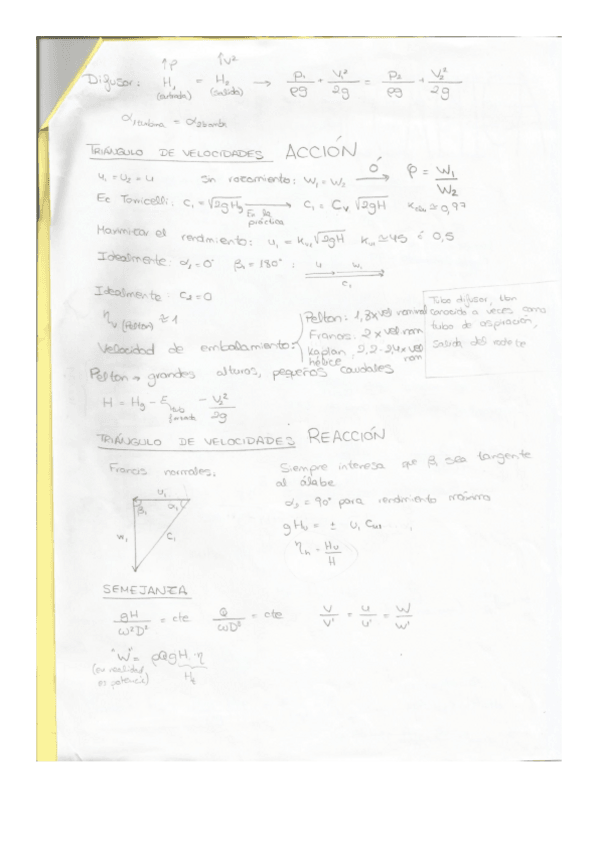 ↑p ↑v²
Difusor: H₁ = H₂ → p₁/ρg + V₁²/2g = p₂/ρg + V₂²/2g
(entrada) (salida)
α₁turbina = α₂bomba
TRIÁNGULO DE VELOCIDADES ACCIÓN
u₁ = u₂ = u Sin rozamiento: w₁ = w₂ → Ó φ = W₁/W₂
Ec Torricelli: C₁ = √2gH → En la práctica C₁ = Cv √2gH ≃ 0,97
Maximizar el rendimiento: u₁ = Ku₁ √2gH Ku ≃ 45 ó 0,5
Idealmente: α₁ = 0° β₁ = 180° : u w₁ c₁
Idealmente: C₂ = 0
η (Pelton) ≃ 1
Velocidad de embalamiento:
Pelton: 1,8 x vel nominal
Francis: 2 x vel nom
Kaplan, hélice 2,2-2,4 x vel nom
Tubo difusor,
conocido a veces como
tubo de aspiración,
salida del rodete
Pelton → grandes alturas, pequeños caudales
H = - - V₂²/2g
TRIÁNGULO DE VELOCIDADES REACCIÓN
Francis normales:
u₁ β₁ α₁ w₁ c₁
Siempre interesa que β₁ sea tangente
al álabe
α₂ = 90° para rendimiento máximo
gHu = ± u₁ Cu₁
ηh = Hu/H
SEMEJANZA
gH/ω²D² = cte Q/ωD³ = cte V/V' = u/u' = W/W'
"W" = ρQgH·η
(en realidad
es potencia)